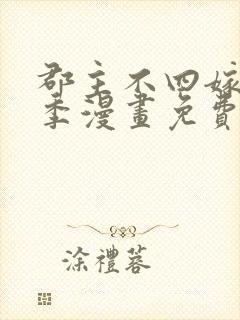 郡主不四嫁
季漫畫免費
涂禮蓉